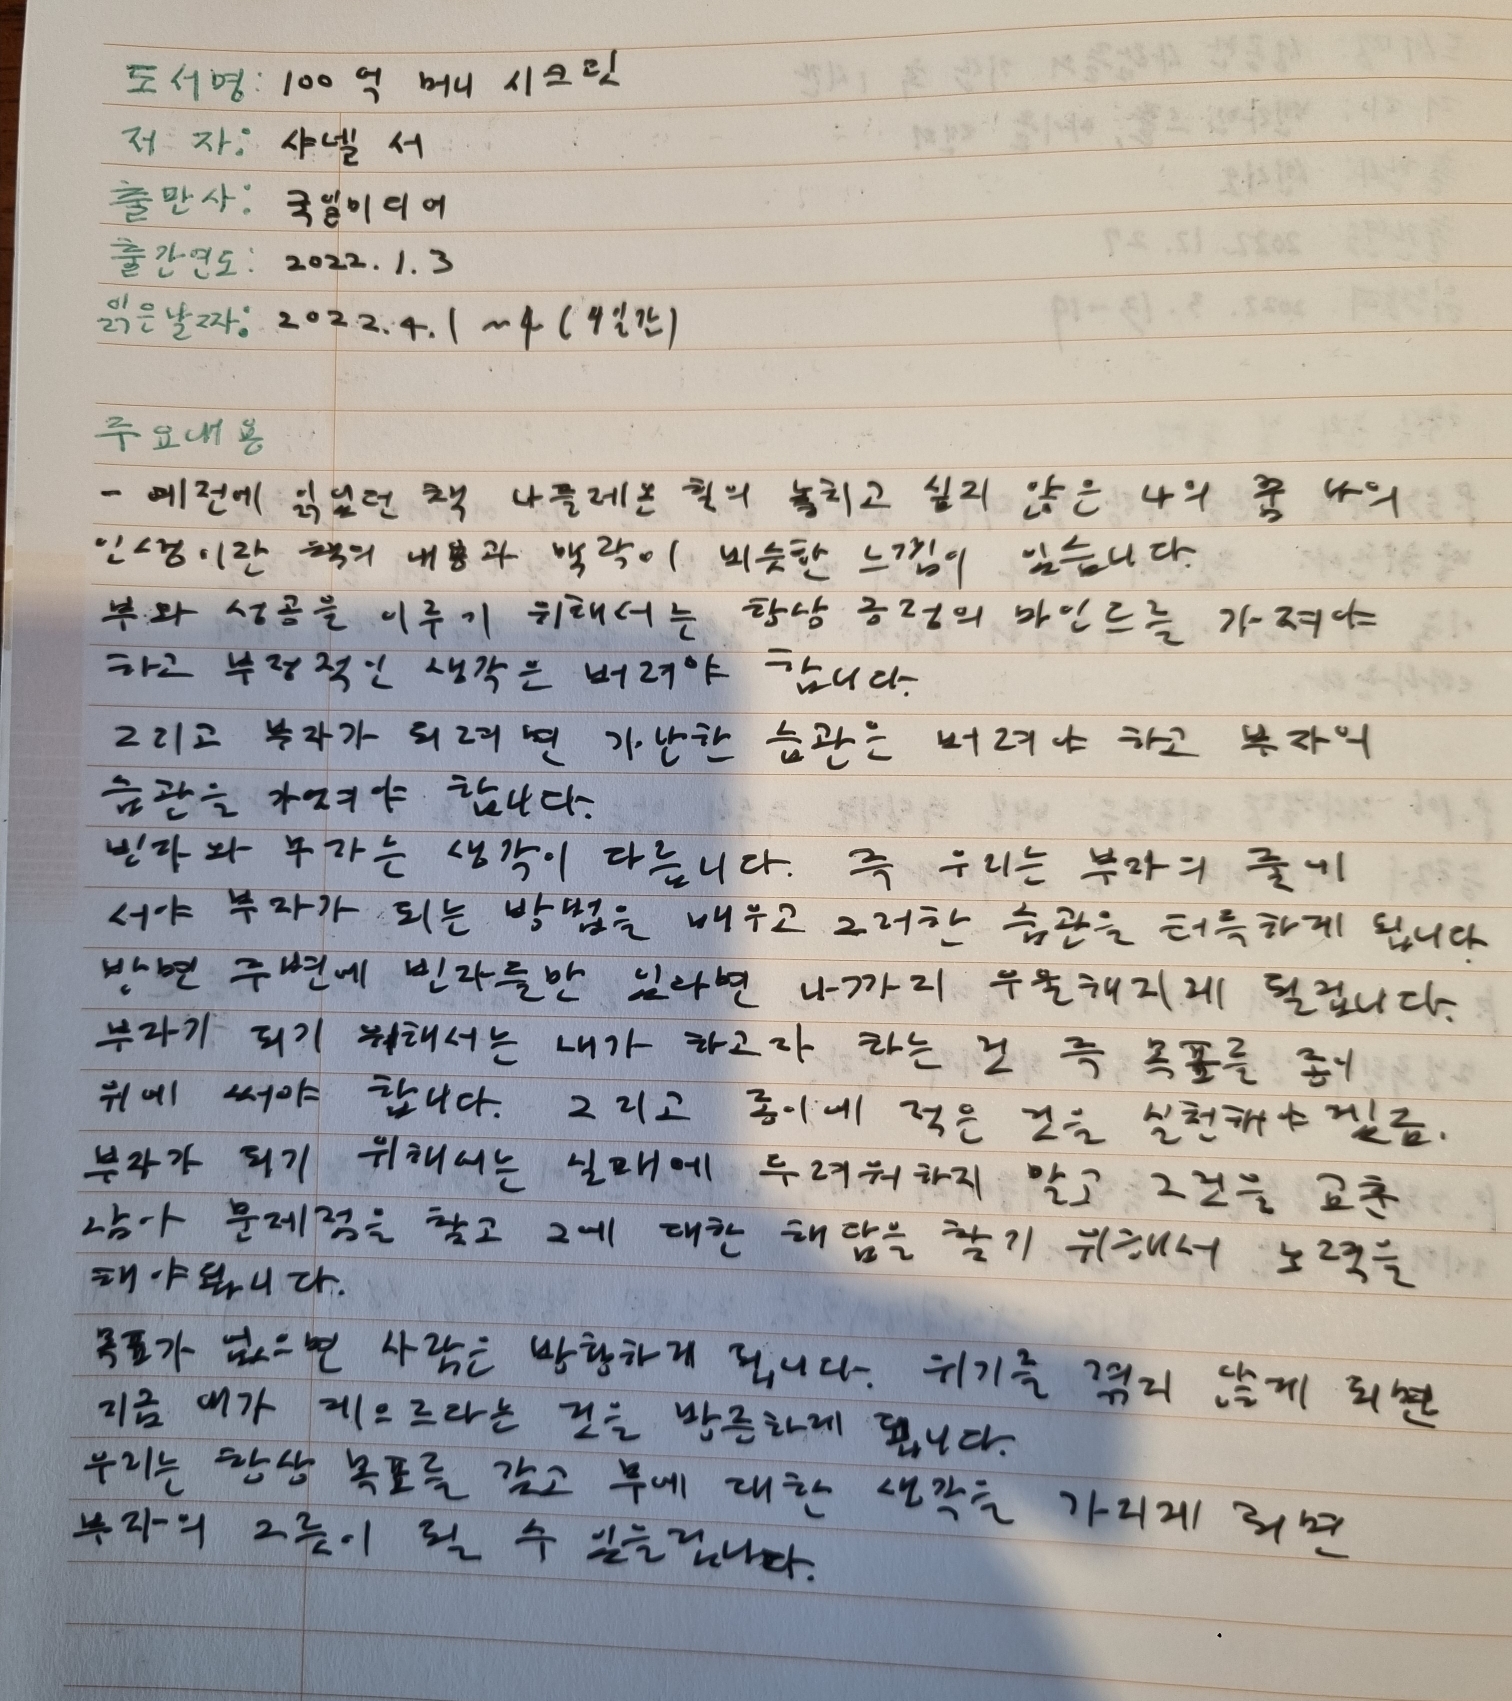 도서명: 100억 머니 시크릿
저 자: 샤넬 서
출판사: 국일미디어
출간연도: 2022. 1. 3
읽은날짜: 2022. 4. 1 ~ 4 (4일간)
주요내용
- 예전에 읽었던 책 나폴레온 힐의 놓치고 싶지 않은 나의 꿈 나의
인생이란 책의 내용과 맥락이 비슷한 느낌이 있습니다.
부와 성공을 이루기 위해서는 항상 긍정의 마인드를 가져야
하고 부정적인 생각은 버려야 합니다.
그리고 부자가 되려면 가난한 습관은 버려야 하고 부자의
습관을 가져야 합니다.
빈자와 부자는 생각이 다릅니다. 즉 우리는 부자의 줄에
서야 부자가 되는 방법을 배우고 그러한 습관을 터득하게 됩니다.
방면 주변에 빈자들만 있다면 나까지 우울해지게 될겁니다.
부자가 되기 위해서는 내가 하고자 하는 것 즉 목표를 종이
위에 써야 합니다. 그리고 종이에 적은 것을 실천해야
부자가 되기 위해서는 실패에 두려워하지 말고 그것을 교훈
삼아 문제점을 찾고 그에 대한 해답을 찾기 위해서 노력을
해야됩니다.
목표가 없으면 사람은 방황하게 됩니다. 위기를 겪지 않게 되면
지금 내가 게으르다는 것을 방증하게 됩니다.
우리는 항상 목표를 갖고 부에 대한 생각을 가지게 되면
부자의 그릇이 될 수 있을겁니다.